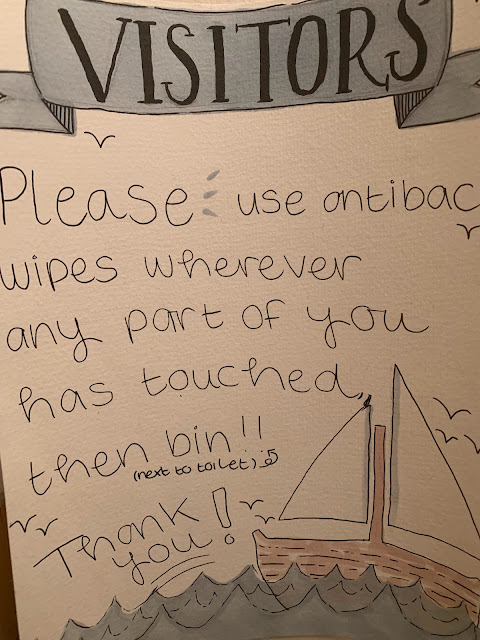 VISITORS
Please use antibac
wipes wherever
any part of you
has touched,
then bin!!
(next to toilet)
Thank
you!